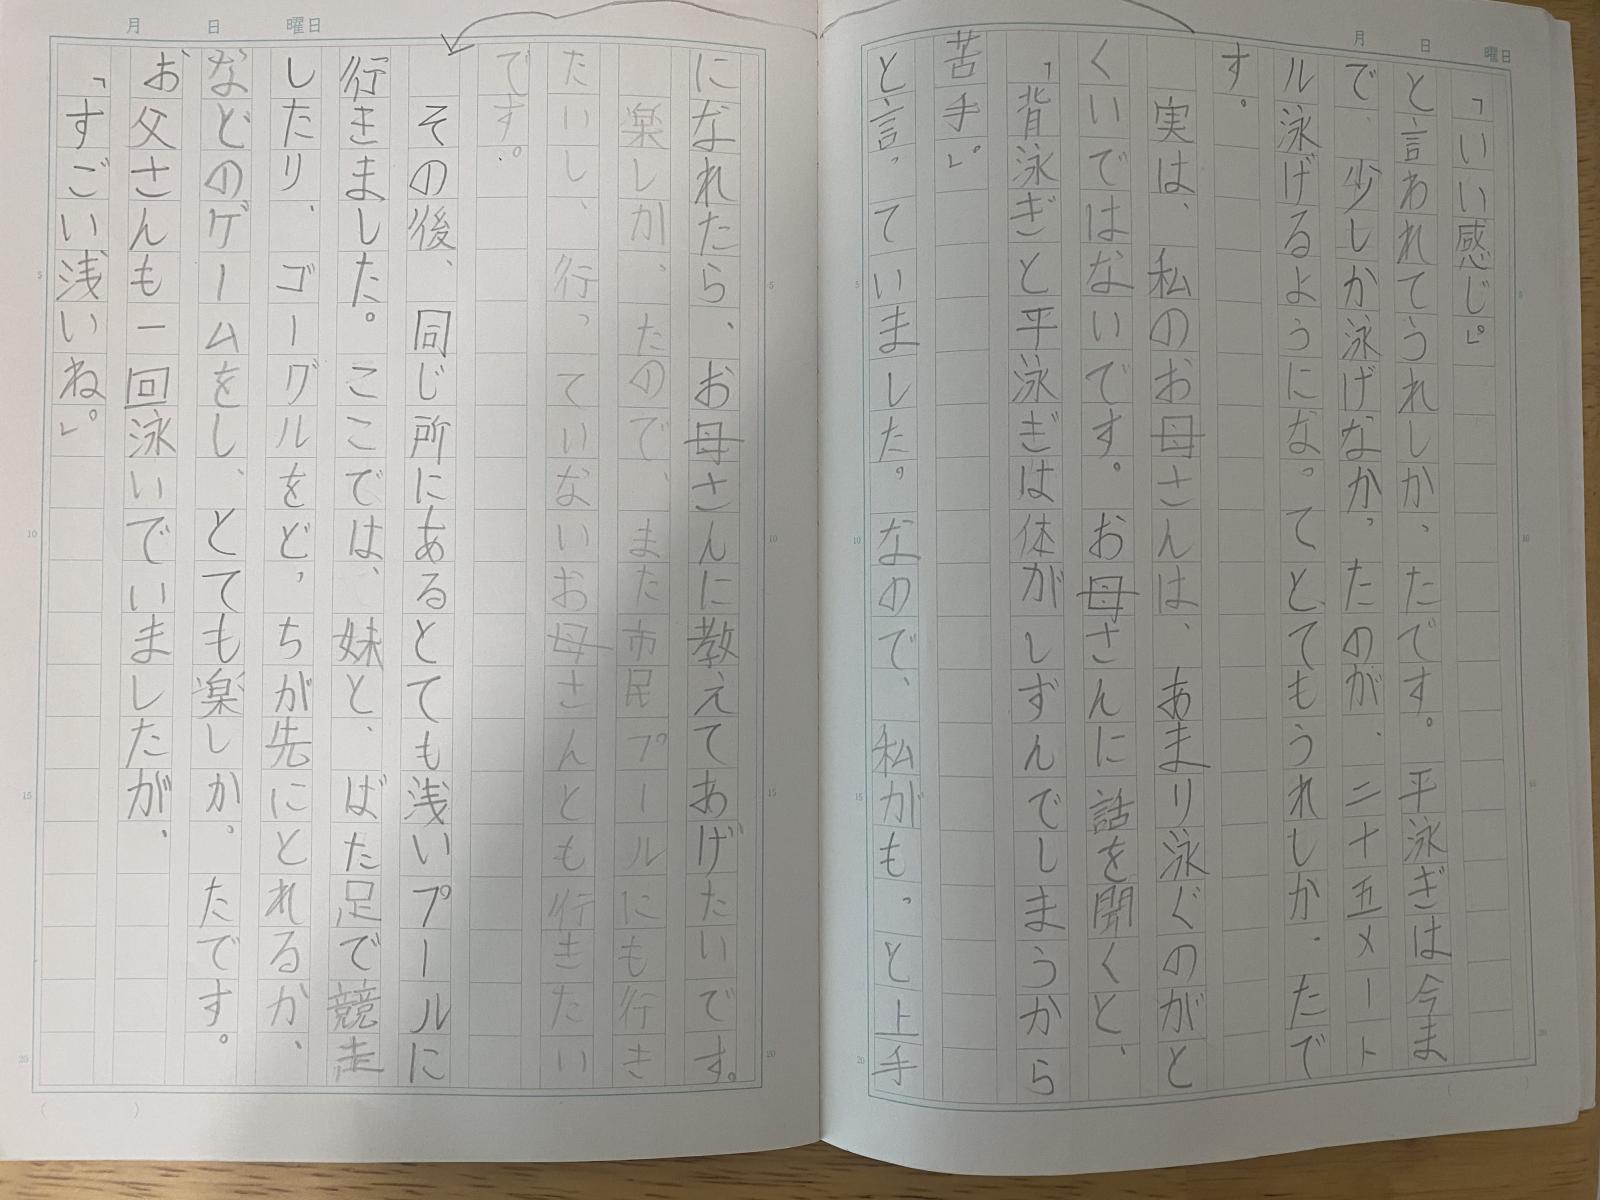 月 日 曜日
「いい感じ」。
と言われてうれしかったです。平泳ぎは今ま
で、少しか泳げなかったのが、二十五メート
ル泳げるようになってとてもうれしかったで
す。
実は、私のお母さんは、あまり泳ぐのがと
くいではないです。お母さんに話を聞くと、
「背泳ぎと平泳ぎは体がしずんでしまうから
苦手」。
と言っていました。なので、私がもっと上手
月 日 曜日
になれたら、お母さんに教えてあげたいです。
楽しかったので、また市民プールにも行き
たいし、行っていないお母さんとも行きたい
です。
その後、同じ所にあるとても浅いプールに
行きました。ここでは、妹と、ばた足で競走
したり、ゴーグルをどっちが先にとれるか、
などのゲームをし、とても楽しかったです。
お父さんも一回泳いでいましたが、
「すごい浅いね。」